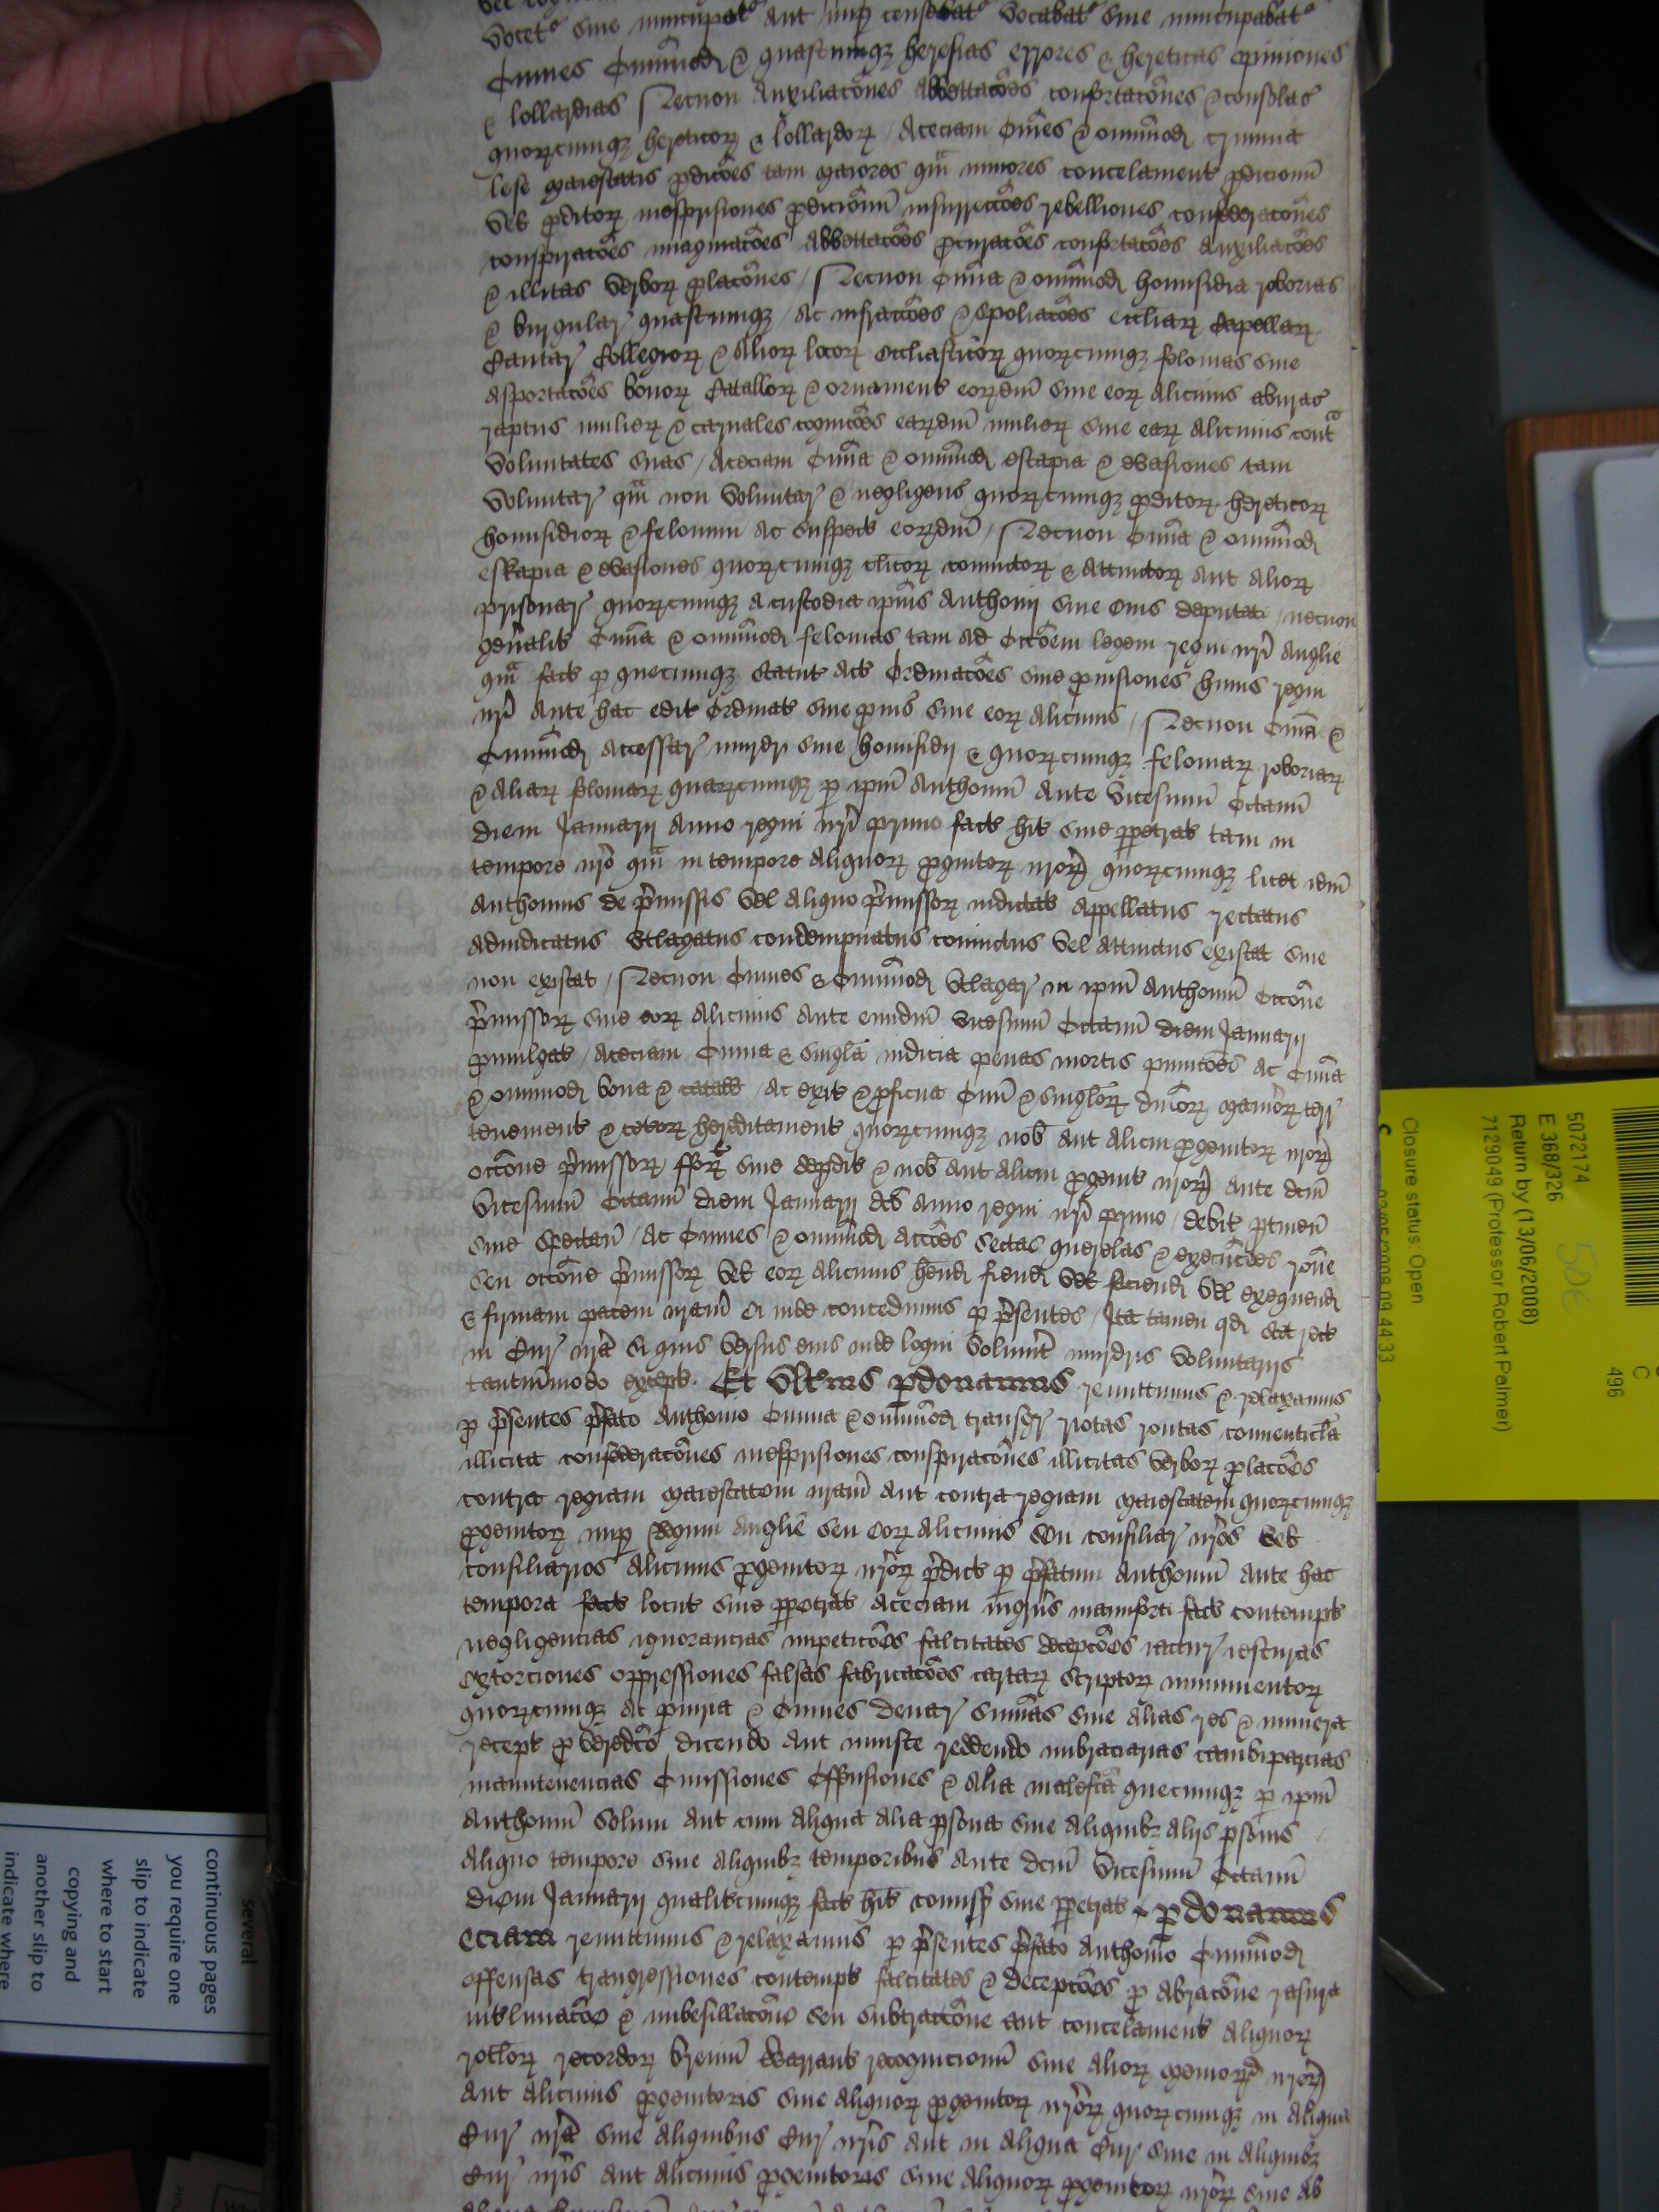 vocet' sive nuncupat' aut nup censebat' vocabat' sive nuncupabat'
Omnes Omimod & quascumq heresias errores & hereticas opiniones
& lollardias Necnon Auxiliacoes Abbettacoes confortacoes & consolac
quorcumq hereticor & lollardor / Aceciam Omes & omimod crimina
lese maiestatis pdicoes tam maiores qam minores concelament pdicionu
vel pditor mesprisiones pdicionu insurreccoes rebelliones confederacoes
conspiracoes imaginacoes Abbettacoes pcuracoes confortacoes Auxiliacoes
& illicitas verbor placoes / Necnon Omia & omimod homisidia roborias
& burgular' quascumq / Ac infraccoes & spoliacoes eccliar Capellar
Cantar' Collegior & Alior locor eccliasticor quorcumq felonias sive
asportacoes bonor Catallor & ornament eordm sive eor Alicuius
raptus mulier & carnales cognicoes eardm mulier sive ear Alicuius cont
voluntates suas / Aceciam Omia & omimod escapia & evasiones tam
voluntar' qam non voluntar' & negligens quorcumq pditor hereticor
homisidior & felonum ac suspect eordm / Necnon Omia & omimod
eskapia & evasiones quorcumq clicor convictor & Attinctor aut alior
prisonar' quorcumq a custodia ipius Anthonij sive eius deputati / necnon
genalit Omia & omimod felonias tam ad coem legem regni nri Anglie
qam fact p quecumq Statut Act Ordinacoes sive pvisiones huius regni
nri Ante hac edit Ordinat sive pvis sive eor Alicuius / Necnon Omia &
Omimod Accessar' murdr sive homisidij & quorcumq feloniar roboriar
& Aliar feloniar quarcumq p ipm Anthoniu Ante vicesimu Octavu
diem Januarij Anno regni nri primo fact hit sive ppetrat tam in
tempore nro qam in tempore Aliquor pgenitor nror quorcumq licet idm
Anthonius de pmissis vel aliquo pmissor indictat Appellatus rectatus
Adiudicatus Utlagatus condempnatus convictus vel Attinctus existat sive
non existat / Necnon Omnes & Omimod Utlagar' in ipm Anthoniu occone
pmissor sive eor Alicuius Ante eundm vicesimu Octavu diem Januarij
pmulgat / Aceciam Omnia & singla iudicia penas mortis punicoes Ac Omia
& omimod bona & catall / Ac exit & pficua Omi & singlor dnior manior terr'
tenement & cetor hereditament quorcumq nob aut Alicui pgenitor nror
occone pmissor fforis sive depdit & nob aut alicui pgenit nror Ante dcm
vicesimu Octavu diem Januarij dco Anno regni nri primo / debit ptinen
sive spectan / Ac Omnes & omimod Accoes sectas querelas & execucoes rone
seu occone pmissor vel eor Alicuius hend fiend vel faciend vel exequend
& firmam pacem nram ei inde concedimus p psentes / Ita tamen qd stet rect
in Cur' nra si quis versus eum inde loqui voluerit murdris voluntarijs
tantumodo except. Et ulterius pdonamus remittimus & relaxamus
p psentes pfato Anthonio Omnia & omimod transgr' riotas routas conventicla
illicita confederacoes mesprisiones conspiracoes illicitas verbor placoes
contra regiam maiestatem nram aut contra regiam maiestatem quorcumq
pgenitor nup Regum Anglie seu eor Alicuius seu consiliar' nros vel
consiliarios Alicuius pgenitor nror pdict p pfatum Anthoniu Ante hac
tempora fact locut sive ppetrat Aceciam ingrus manuforti fact contempt
negligencias ignorancias impeticoes falcitates decepcoes iactur' rescuras
extorciones oppressiones falsas fabricacoes cartar scriptor munimentor
quorcumq Ac piuria & Omnes denar' sumas sive alias res & munera
recept p vedco dicendo aut iniuste reddendo imbraciarias cambiparcias
manutenencias Omissiones Offensiones & Alia malefca quecumq p ipm
Anthoniu solum aut cum Aliqua alia psona sive Aliquibz alijs psonis
Aliquo tempore sive Aliquibz temporibus Ante dcm vicesimu Octavu
diem Januarij qualitcumq fact hit comiss sive ppetrat & pdonamus
eciam remittimus & relaxamus p psentes pfato Anthonio Omimod
offensas trangressiones contempt falcitates & decepcoes p abracone rasura
intlimacoe & imbesillacone seu subtraccone aut concelament Aliquor
rotlor recordor brevium Warrant recognicionu sive alior memorand nror
aut alicuius pgenitoris sive Aliquor pgenitor nror quorcumq in Aliqua
Cur' nra sive Aliquibus Cur' nris aut in Aliqua Cur' sive in Aliquibz
Cur' nris aut Alicuius pgenitoris sive Aliquor pgenitor nror sive ab
5072174
E 368/326
Return by (13/06/2008)
7129049 (Professor Robert Palmer)
Closure status: Open
50E
C
496
several
continuous pages
you require one
slip to indicate
where to start
copying and
another slip to
indicate where